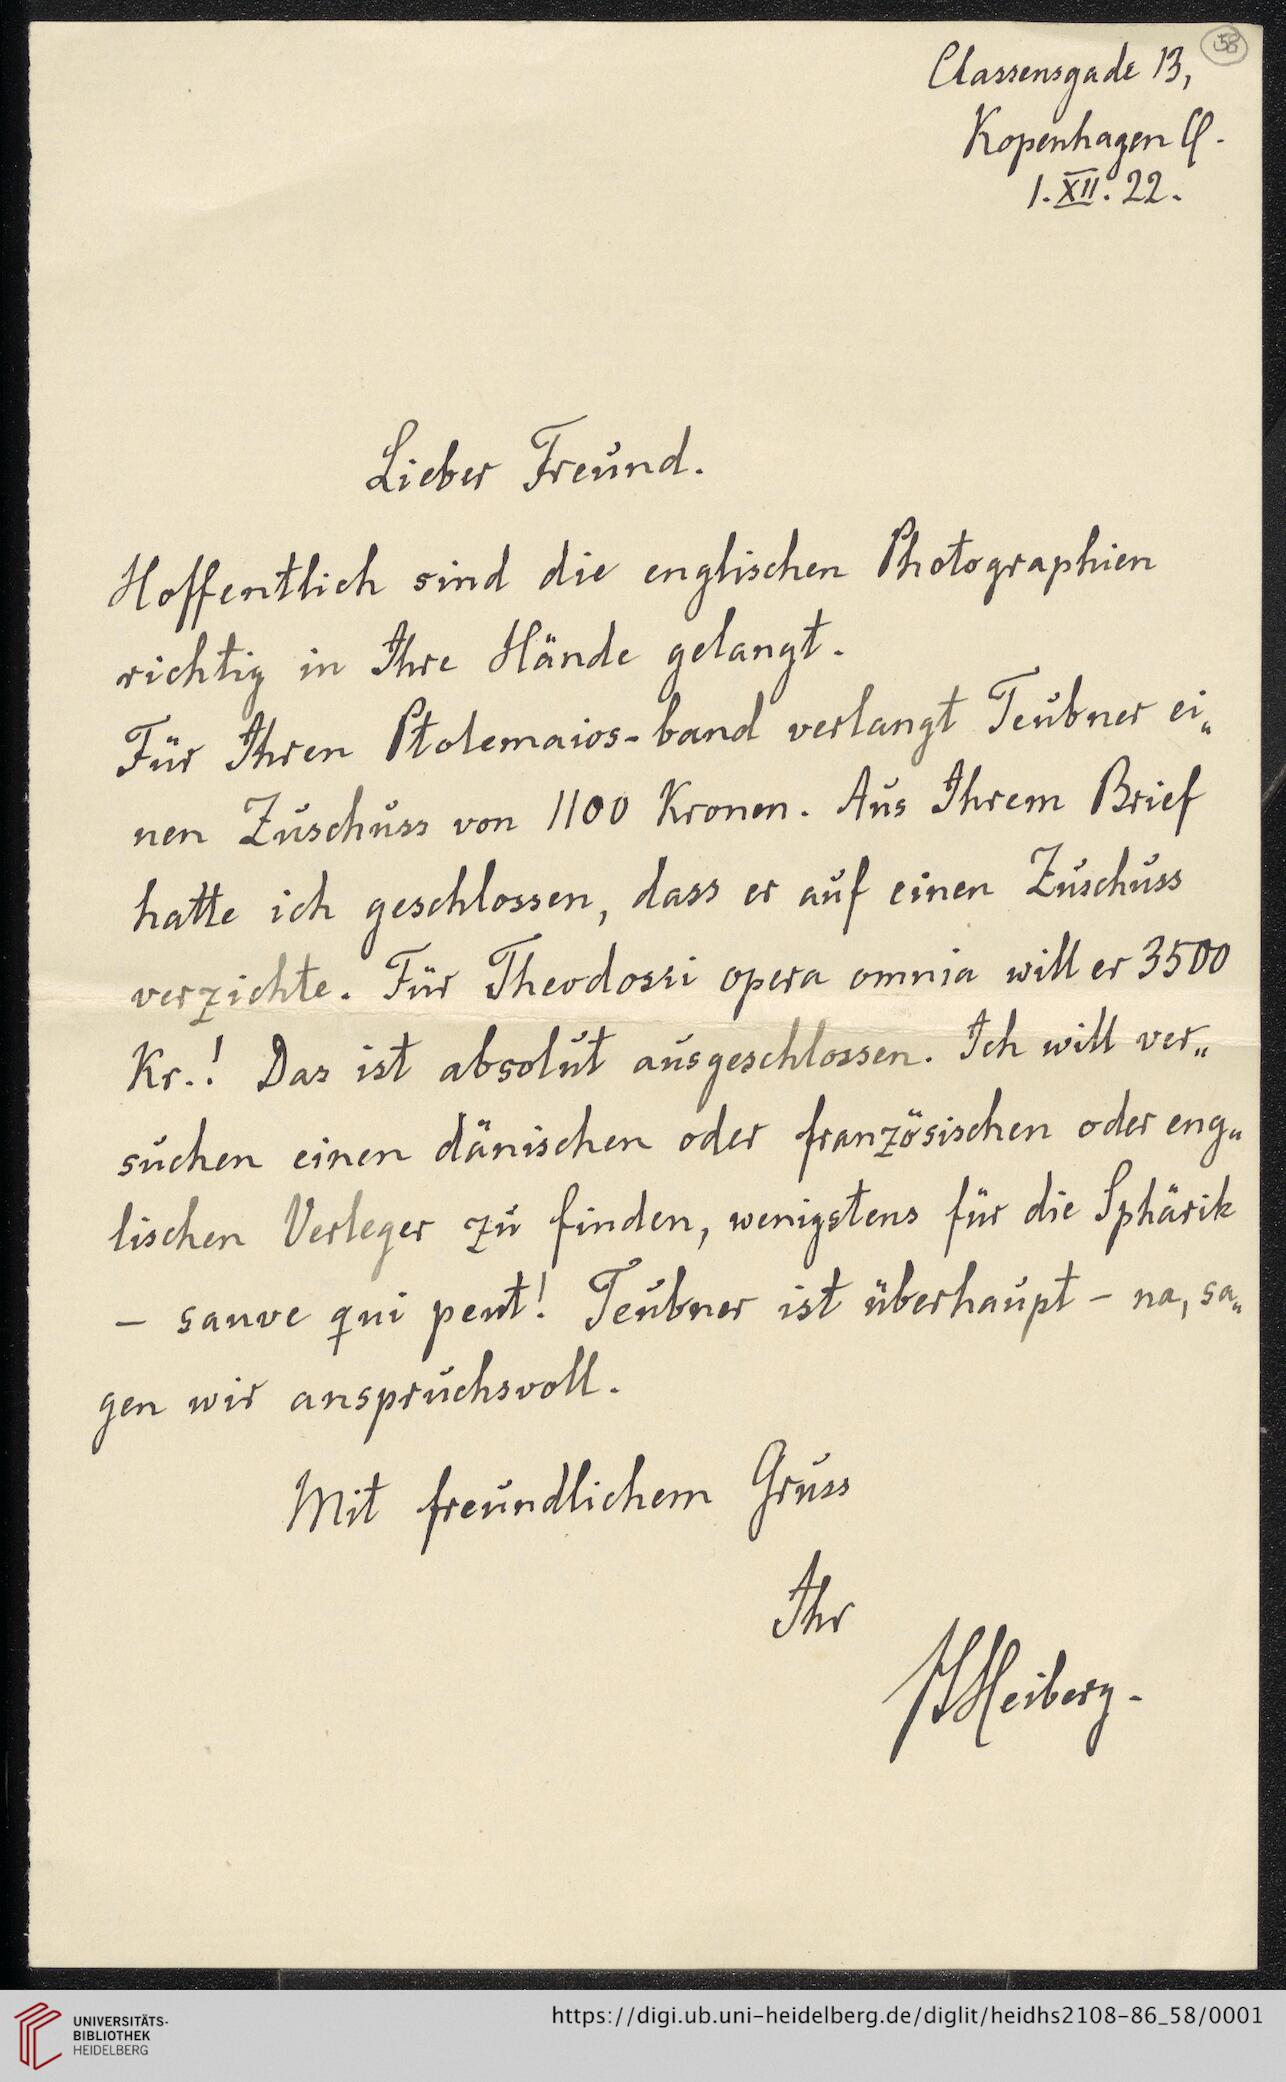 58
Classensgade 13,
Kopenhagen Ø.
1.XII.22.
Lieber Freund.
Hoffentlich sind die englischen Photographien
richtig in Ihre Hände gelangt.
Für Ihren Ptolemaios-band verlangt Teubner ei„
nen Zuschuss von 1100 Kronen. Aus Ihrem Brief
hatte ich geschlossen, dass er auf einen Zuschuss
verzichte. Für Theodosii opera omnia will er 3500
Kr.! Das ist absolut ausgeschlossen. Ich will ver„
suchen einen dänischen oder französischen oder eng„
lischen Verleger zu finden, wenigstens für die Sphärik
– sauve qui peut! Teubner ist überhaupt – na, sa„
gen wir anspruchsvoll.
Mit freundlichem Gruss
Ihr
JLHeiberg.
UNIVERSITÄTS-
BIBLIOTHEK
HEIDELBERG
https://digi.ub.uni-heidelberg.de/diglit/heidhs2108-86_58/0001